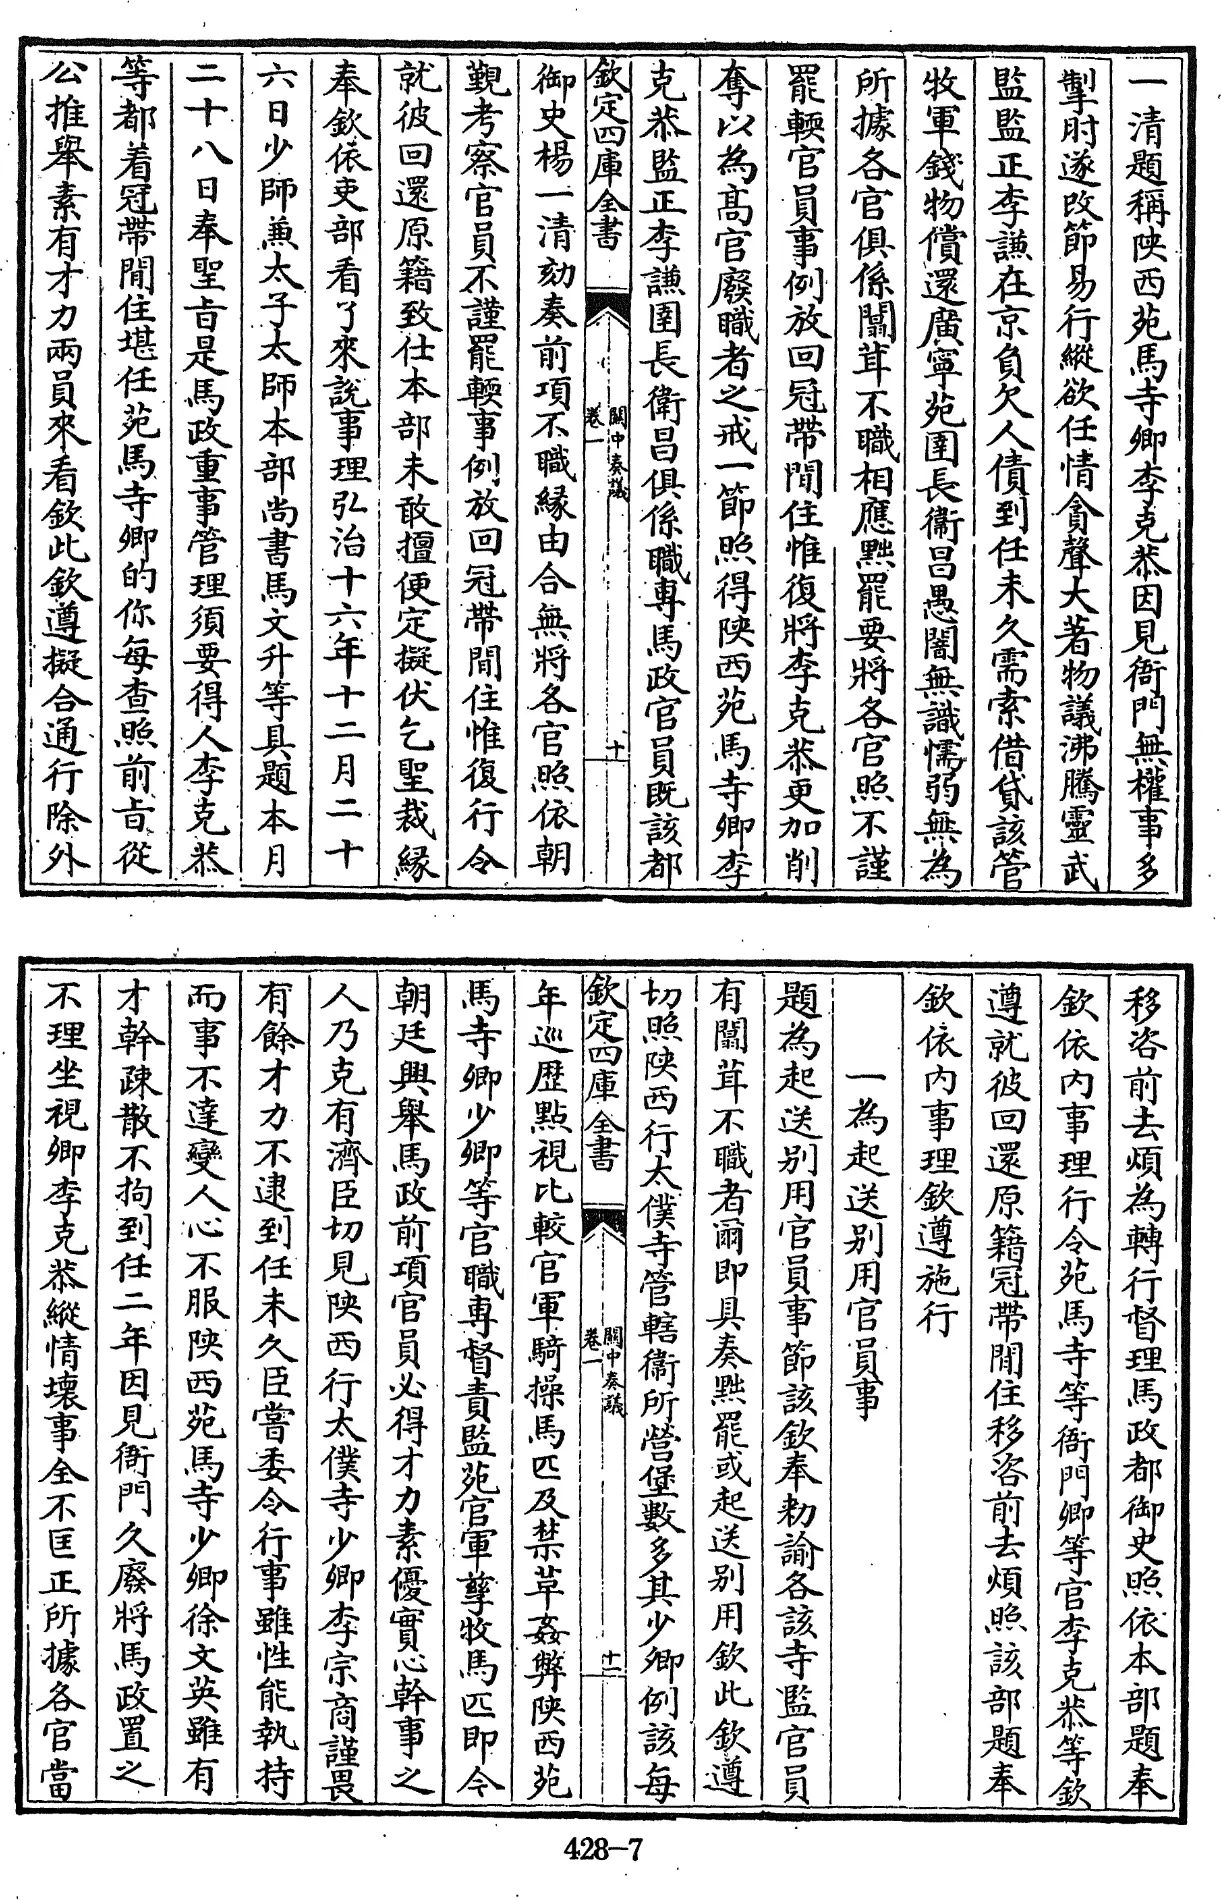 一清題稱陜西苑馬寺卿李克恭因見衙門無權事多
掣肘遂改節易行縱欲任情貪聲大著物議沸騰靈武
監監正李謙在京負欠人債到任未久需索借貸該管
牧軍錢物償還廣寧苑圉長衛昌愚闇無識懦弱無為
所據各官俱係闒茸不職相應黜罷要將各官照不謹
罷輭官員事例放回冠帶閒住惟復將李克恭更加削
奪以為高官廢職者之戒一節照得陜西苑馬寺卿李
克恭監正李謙圉長衛昌俱係職專馬政官員既該都
欽定四庫全書
關中奏議
卷一
十
御史楊一清劾奏前項不職縁由合無將各官照依朝
覲考察官員不謹罷輭事例放回冠帶閒住惟復行令
就彼回還原籍致仕本部未敢擅便定擬伏乞聖裁縁
奉欽依吏部看了來說事理弘治十六年十二月二十
六日少師兼太子太師本部尚書馬文升等具題本月
二十八日奉聖旨是馬政重事管理須要得人李克恭
等都着冠帶閒住堪任苑馬寺卿的你每查照前旨從
公推舉素有才力兩員來看欽此欽遵擬合通行除外
移咨前去煩為轉行督理馬政都御史照依本部題奉
欽依內事理行令苑馬寺等衙門卿等官李克恭等欽
遵就彼回還原籍冠帶閒住移咨前去煩照該部題奉
欽依內事理欽遵施行
一為起送別用官員事
題為起送別用官員事節該欽奉勅諭各該寺監官員
有闒茸不職者爾即具奏黜罷或起送別用欽此欽遵
切照陜西行太僕寺管轄衞所營堡數多其少卿例該每
欽定四庫全書
關中奏議
卷一
十一
年巡歷點視比較官軍騎操馬匹及禁革姦弊陜西苑
馬寺卿少卿等官職專督責監苑官軍孳牧馬匹即今
朝廷興舉馬政前項官員必得才力素優實心幹事之
人乃克有濟臣切見陜西行太僕寺少卿李宗商謹畏
有餘才力不逮到任未久臣嘗委令行事雖性能執持
而事不達變人心不服陜西苑馬寺少卿徐文英雖有
才幹疎散不拘到任二年因見衙門久廢將馬政置之
不理坐視卿李克恭縱情壊事全不匡正所據各官當
428—7